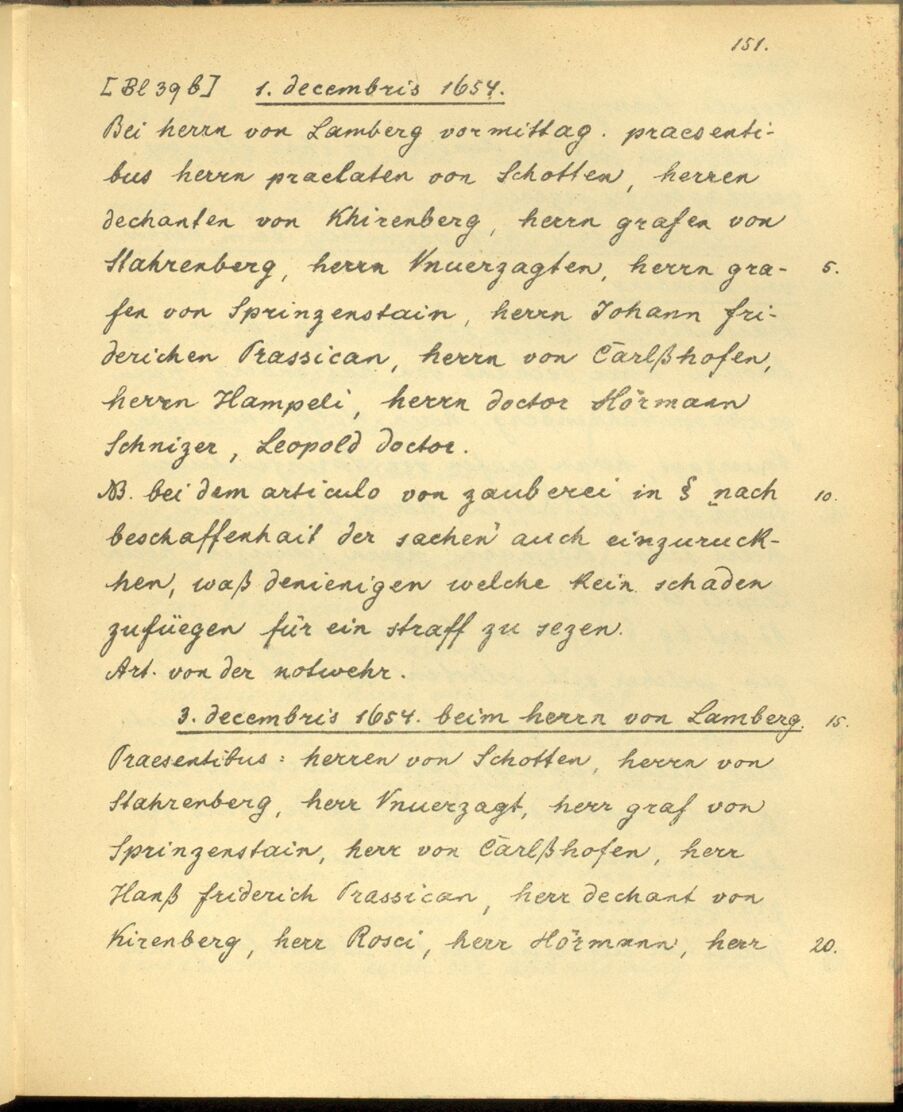 151.
[Bl 39b] 1. decembris 1654.
Bei herrn von Lamberg vormittag. praesenti-
bus herrn praelaten von Schotten, herren
dechanten von Khirenberg, herrn grafen von
Stahrenberg, herrn Vnuerzagten, herrn gra- 5.
fen von Springenstain, herrn Johann fri-
derichen Prassican, herrn von Carlßhofen,
herrn Hampeli, herrn doctor Hörmann
Schnizer, Leopold doctor.
NB. bei dem articulo von zauberei in § „nach 10.
beschaffenhait der sachen" auch einzuruck-
hen, waß denienigen welche kein schaden
zufüegen für ein straff zu sezen.
Art. von der notwehr.
3. decembris 1654. beim herrn von Lamberg. 15.
Praesentibus: herren von Schotten, herrn von
Stahrenberg, herr Vnuerzagt, herr graf von
Springenstain, herr von Carlßhofen, herr
Hanß friderich Prassican, herr dechant von
Kirenberg, herr Rosci, herr Hörmann, herr 20.